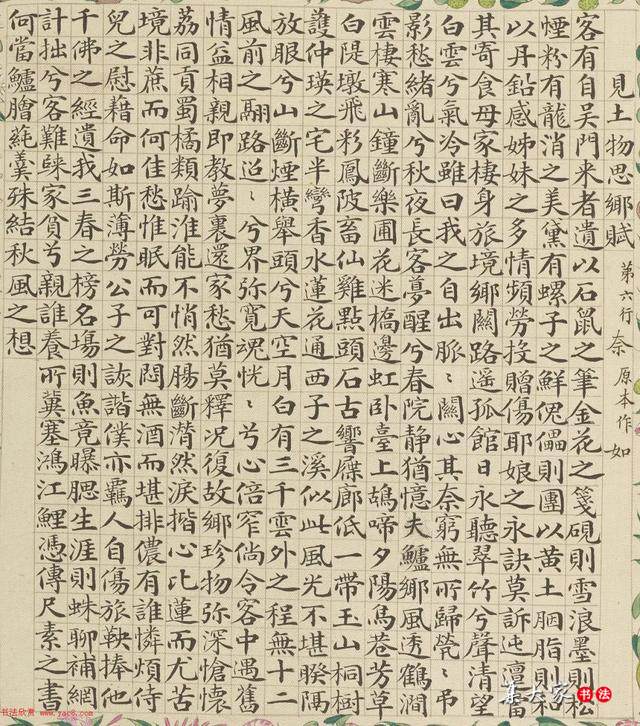 見土物思鄉賦 第六行奈原本作如
客有自吴門來者遺以石鼠之筆金花之箋硯則雪浪墨則松
煙粉有龍消之美黛有螺子之鮮傀儡則團以黃土胭脂則和
以丹鉛感姊妹之多情頻勞投贈傷耶娘之永訣莫訴迍邅若
其寄食母家棲身旅境鄉關路遥孤館日永聽翠竹兮聲清望
白雲兮氣冷雖曰我之自出脈〻關心其奈窮無所歸煢〻吊
影愁緒亂兮秋夜長客夢醒兮春院静猶憶夫鱸鄉風透鶴澗
雲棲寒山鐘斷樂圃花迷橋邊虹卧臺上鴣啼夕陽烏巷芳草
白隄墩飛彩鳳陂畜仙雞點頭石古響屧廊低一帶玉山桐樹
護仲瑛之宅半彎香水蓮花通西子之溪似此風光不堪睽隔
放眼兮山斷煙横舉頭兮天空月白有三千雲外之程無十二
風前之翮路迢〻兮界弥寬魂恍〻兮心倍窄倘令客中遇舊
情益相親即教夢裏還家愁猶莫釋况復故鄉珍物弥深愴懷
荔同貢蜀橘類踰淮能不悄然腸斷潸然淚揩心比蓮而尤苦
境非蔗而何佳愁惟眠而可對悶無酒而堪排儂有誰憐煩侍
兒之慰藉命如斯薄勞公子之詼諧僕亦羈人自傷旅鞅捧他
千佛之經遺我三春之榜名場則魚竟曝腮生涯則蛛聊補網
計拙兮客難睞家貧兮親誰養所冀塞鴻江鯉憑傳尺素之書
何當鱸膾蒓羹殊結秋風之想
书法欣赏 www.yac8.com
集大家书法